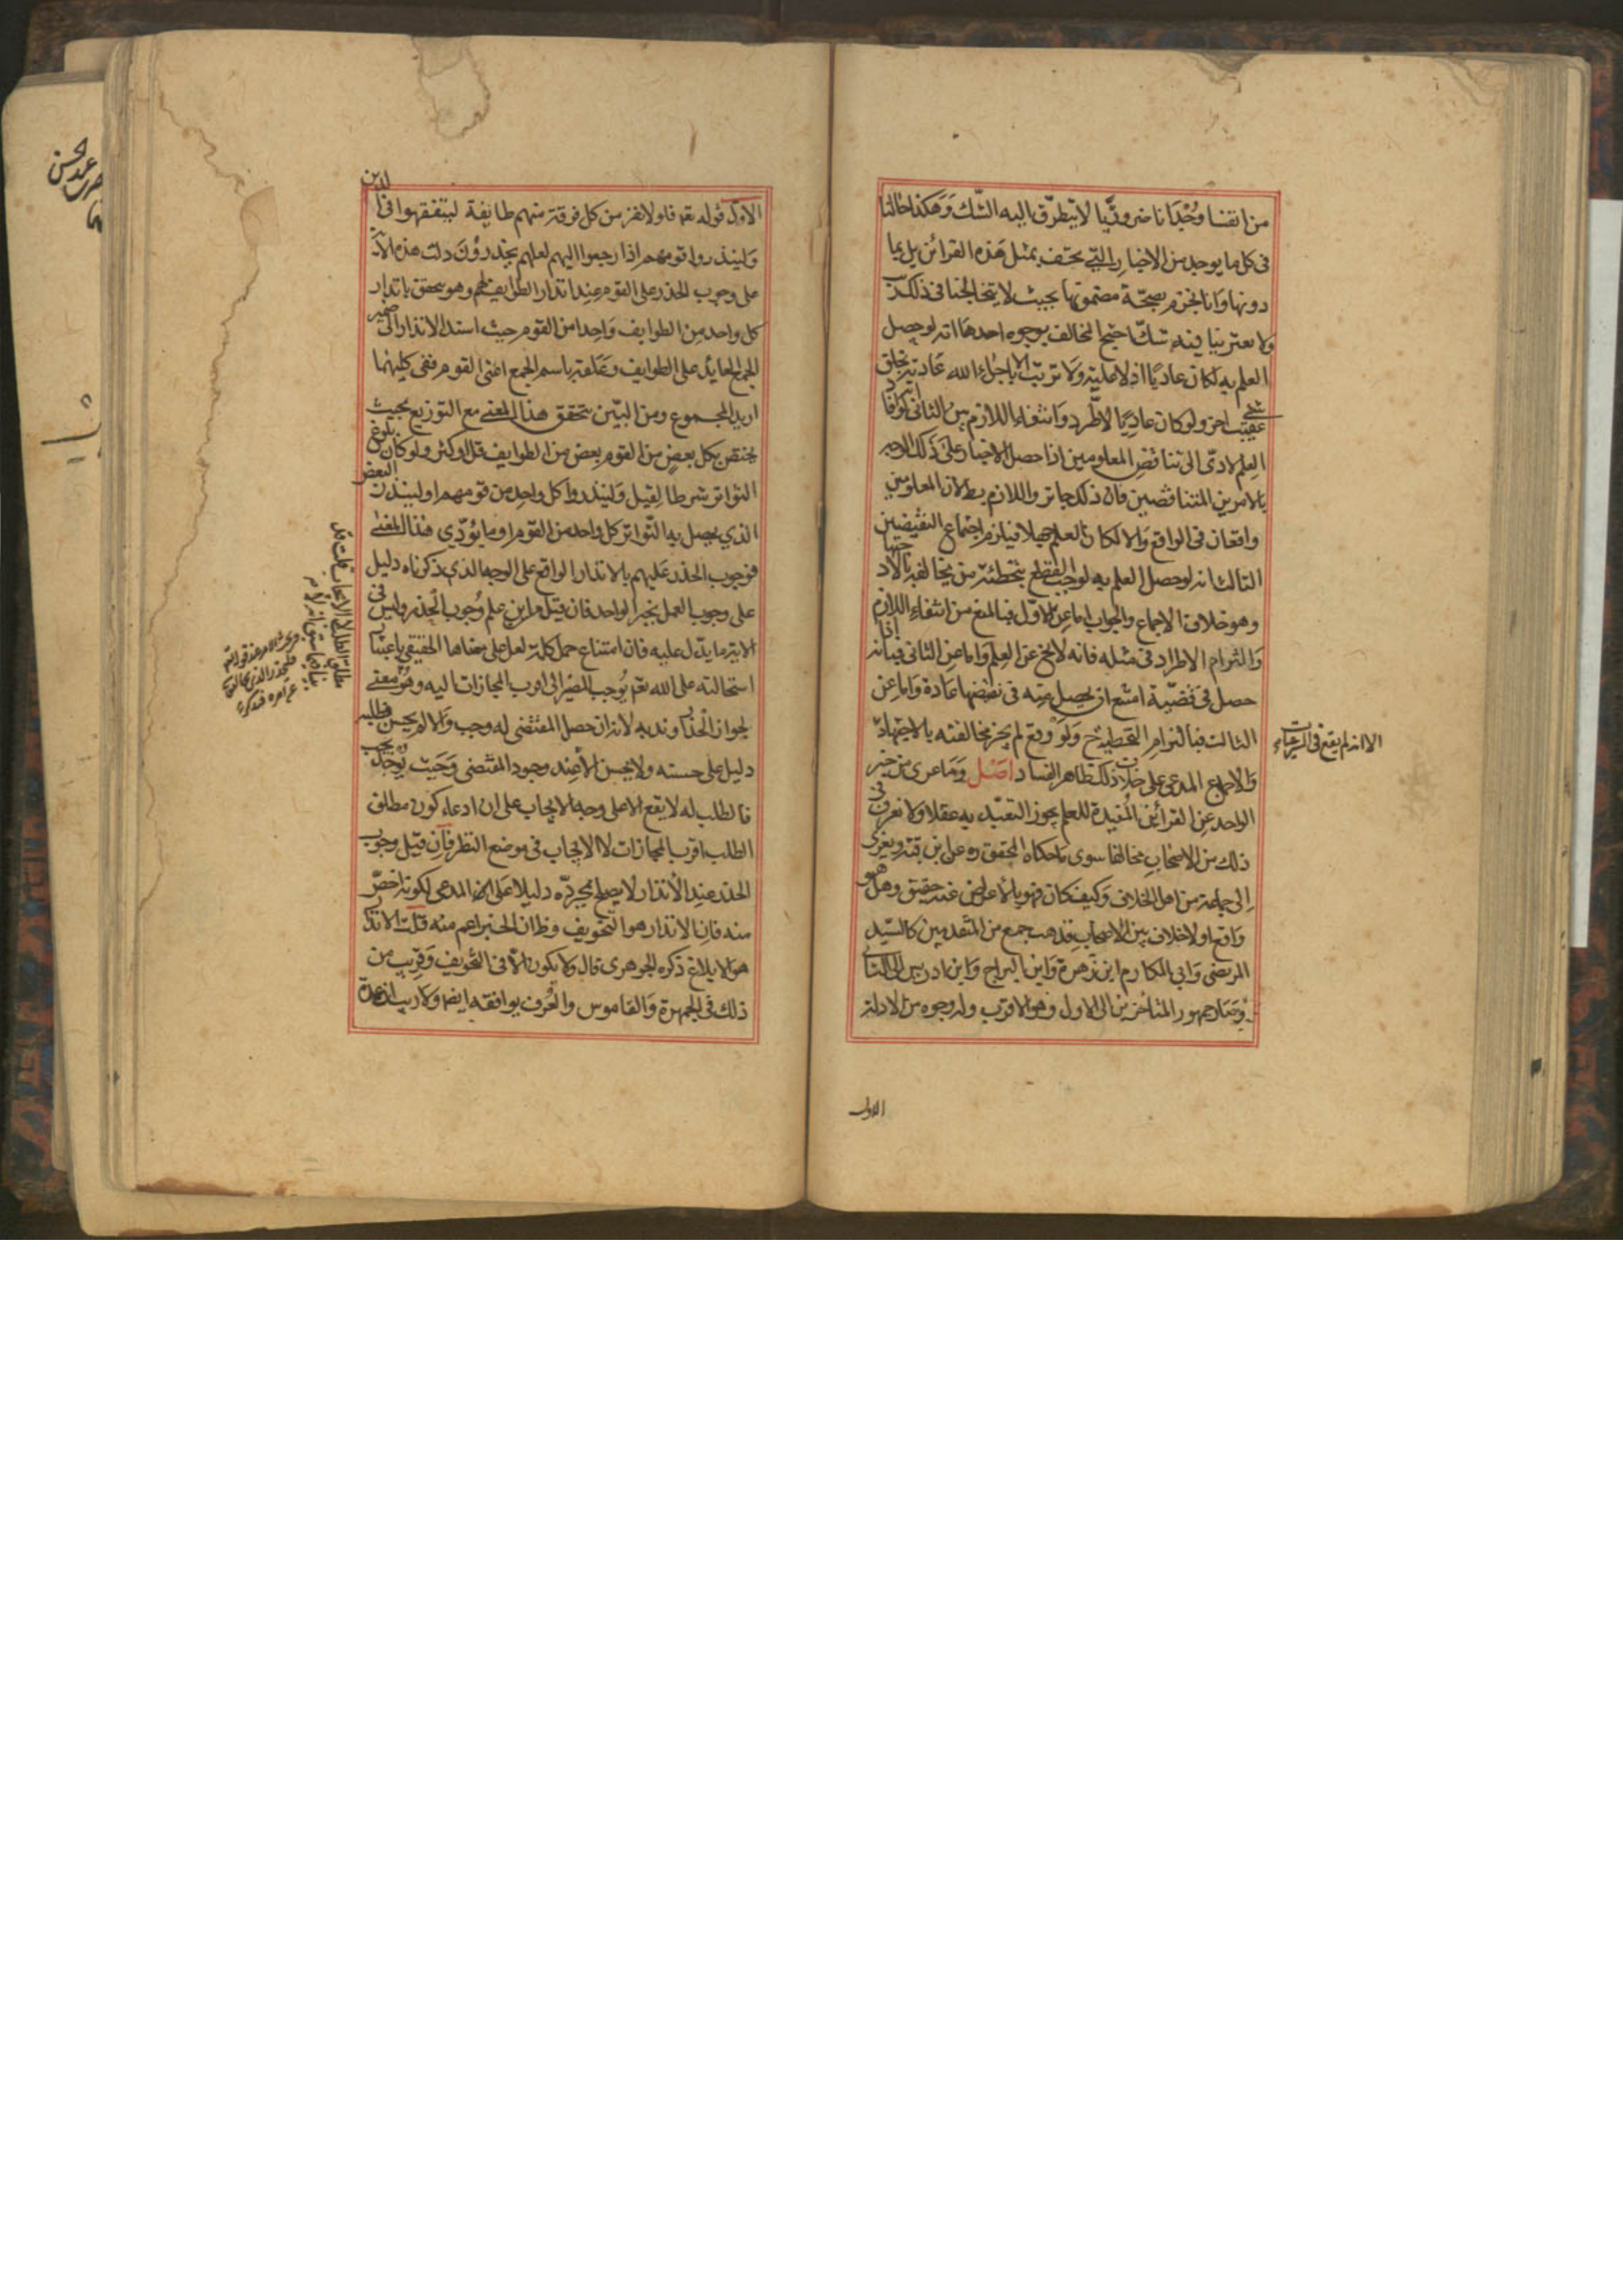 من انفسنا وجدانا ضروريا لا يتطرق اليه الشك وهكذا حالنا
في كل ما يوجد من الاخبار التي تحتف بمثل هذه القرائن بل بما
دونها وانا نجزم بصحة مضمونها بحيث لا يتخالجنا في ذلك ريب
ولا يعترينا فيه شك احتج المخالف بوجوه احدها انه لو حصل
العلم به لكان عاديا اذ لا علية ولا ترتب الا باجراء الله عادته بخلق
شيء عقيب اخر ولو كان عاديا لاطرد وانتفاء اللازم بين الثاني انه لو افاد
العلم لادى الى تناقض المعلومين اذا حصل الاخبار على ذلك الوجه
بالامرين المتناقضين فان ذلك جائز واللازم بطلان المعلومين
واقعان في الواقع والا لكان العلم جهلا فيلزم اجتماع النقيضين
الثالث انه لو حصل العلم به لوجب القطع بتخطئة من يخالفه بالاجتهاد
وهو خلاف الاجماع والجواب اما عن الاول فبالمنع من انتفاء اللازم
والتزام الاطراد في مثله فانه لا يخ عن العلم واما عن الثاني فبانه اذا
حصل في قضية امتنع ان يحصل مثله في نقيضها عادة واما عن
الثالث فبالتزام التخطئة ح ولو وقع لم يجز مخالفته بالاجتهاد
الا انه لم يقع في الشرعيات
والاجماع المدعى على خلاف ذلك ظاهر الفساد اصل وما عرى من خبر
الواحد عن القرائن المفيدة للعلم يجوز التعبد به عقلا ولا نعرف في
ذلك من الاصحاب مخالفا سوى ما حكاه المحقق ره عن ابن قبة ويعزى
الى جماعة من اهل الخلاف وكيف كان فهو بالاعراض عنه حقيق وهل هو
واقع او لا خلاف بين الاصحاب فذهب جمع من المتقدمين كالسيد
المرتضى وابي المكارم ابن زهرة وابن البراج وابن ادريس الى الثاني
وصار جمهور المتاخرين الى الاول وهو الاقرب وله وجوه من الادلة
الاول
الاول قوله تعم فلولا نفر من كل فرقة منهم طايفة ليتفقهوا في الدين
ولينذروا قومهم اذا رجعوا اليهم لعلهم يحذرون دلت هذه الاية
على وجوب الحذر على القوم عند انذار الطوايف لهم وهو يتحقق بانذار
كل واحد من الطوايف واحدا من القوم حيث اسند الانذار الى ضمير
الجمع العايد على الطوايف وعلقه باسم الجمع اعني القوم ففي كليهما
اريد المجموع ومن البين تحقق هذا المعنى مع التوزيع بحيث
يختص بكل بعض من القوم بعض من الطوايف قل او كثر ولو كان بلوغ
التواتر شرطا لقيل ولينذروا كل واحد من قومهم او لينذر البعض
الذي يحصل به التواتر كل واحد من القوم او ما يؤدي هذا المعنى
فوجوب الحذر عليهم بالانذار الواقع على الوجه الذي ذكرناه دليل
على وجوب العمل بخبر الواحد فان قيل من اين علم وجوب الحذر وليس في
الاية ما يدل عليه فان امتناع حمل كلمة لعل على معناها الحقيقي باعتبار
استحالته على الله تعم يوجب المصير الى اقرب المجازات اليه وهو معنى
لجواز الحذر وندبه لانه ان حصل المقتضي له وجب والا لم يحسن فطلبه
دليل على حسنه ولا يحسن الا عند وجود المقتضي وحيث يوجد يجب
فالطلب له لا يقع الا على وجه الايجاب على ان ادعاء كون مطلق
الطلب اقرب المجازات لا الايجاب في موضع النظر فان قيل وجوب
الحذر عند الانذار لا يصلح بمجرده دليلا على المدعى لكونه اخص
منه فان الانذار هو التخويف وظ ان الخبر اعم منه قلت الانذار
هو الابلاغ ذكره الجوهري قال ولا يكون الا في التخويف وقريب من
ذلك في الجمهرة والقاموس والعرف يوافقه ايضا ولا ريب ان عمدة